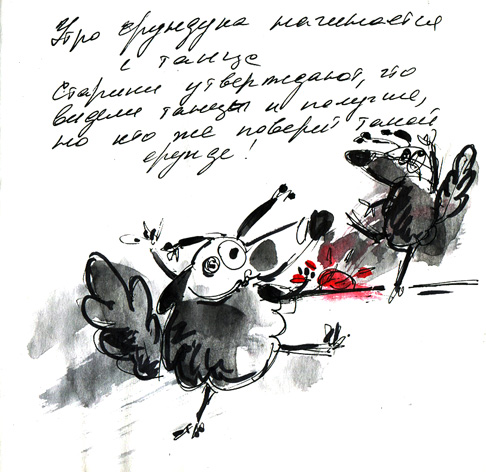 Утро ерундука начинается
с танце
Старики утверждают, что
видели танцы и получше,
но кто же поверит такой
ерунде!